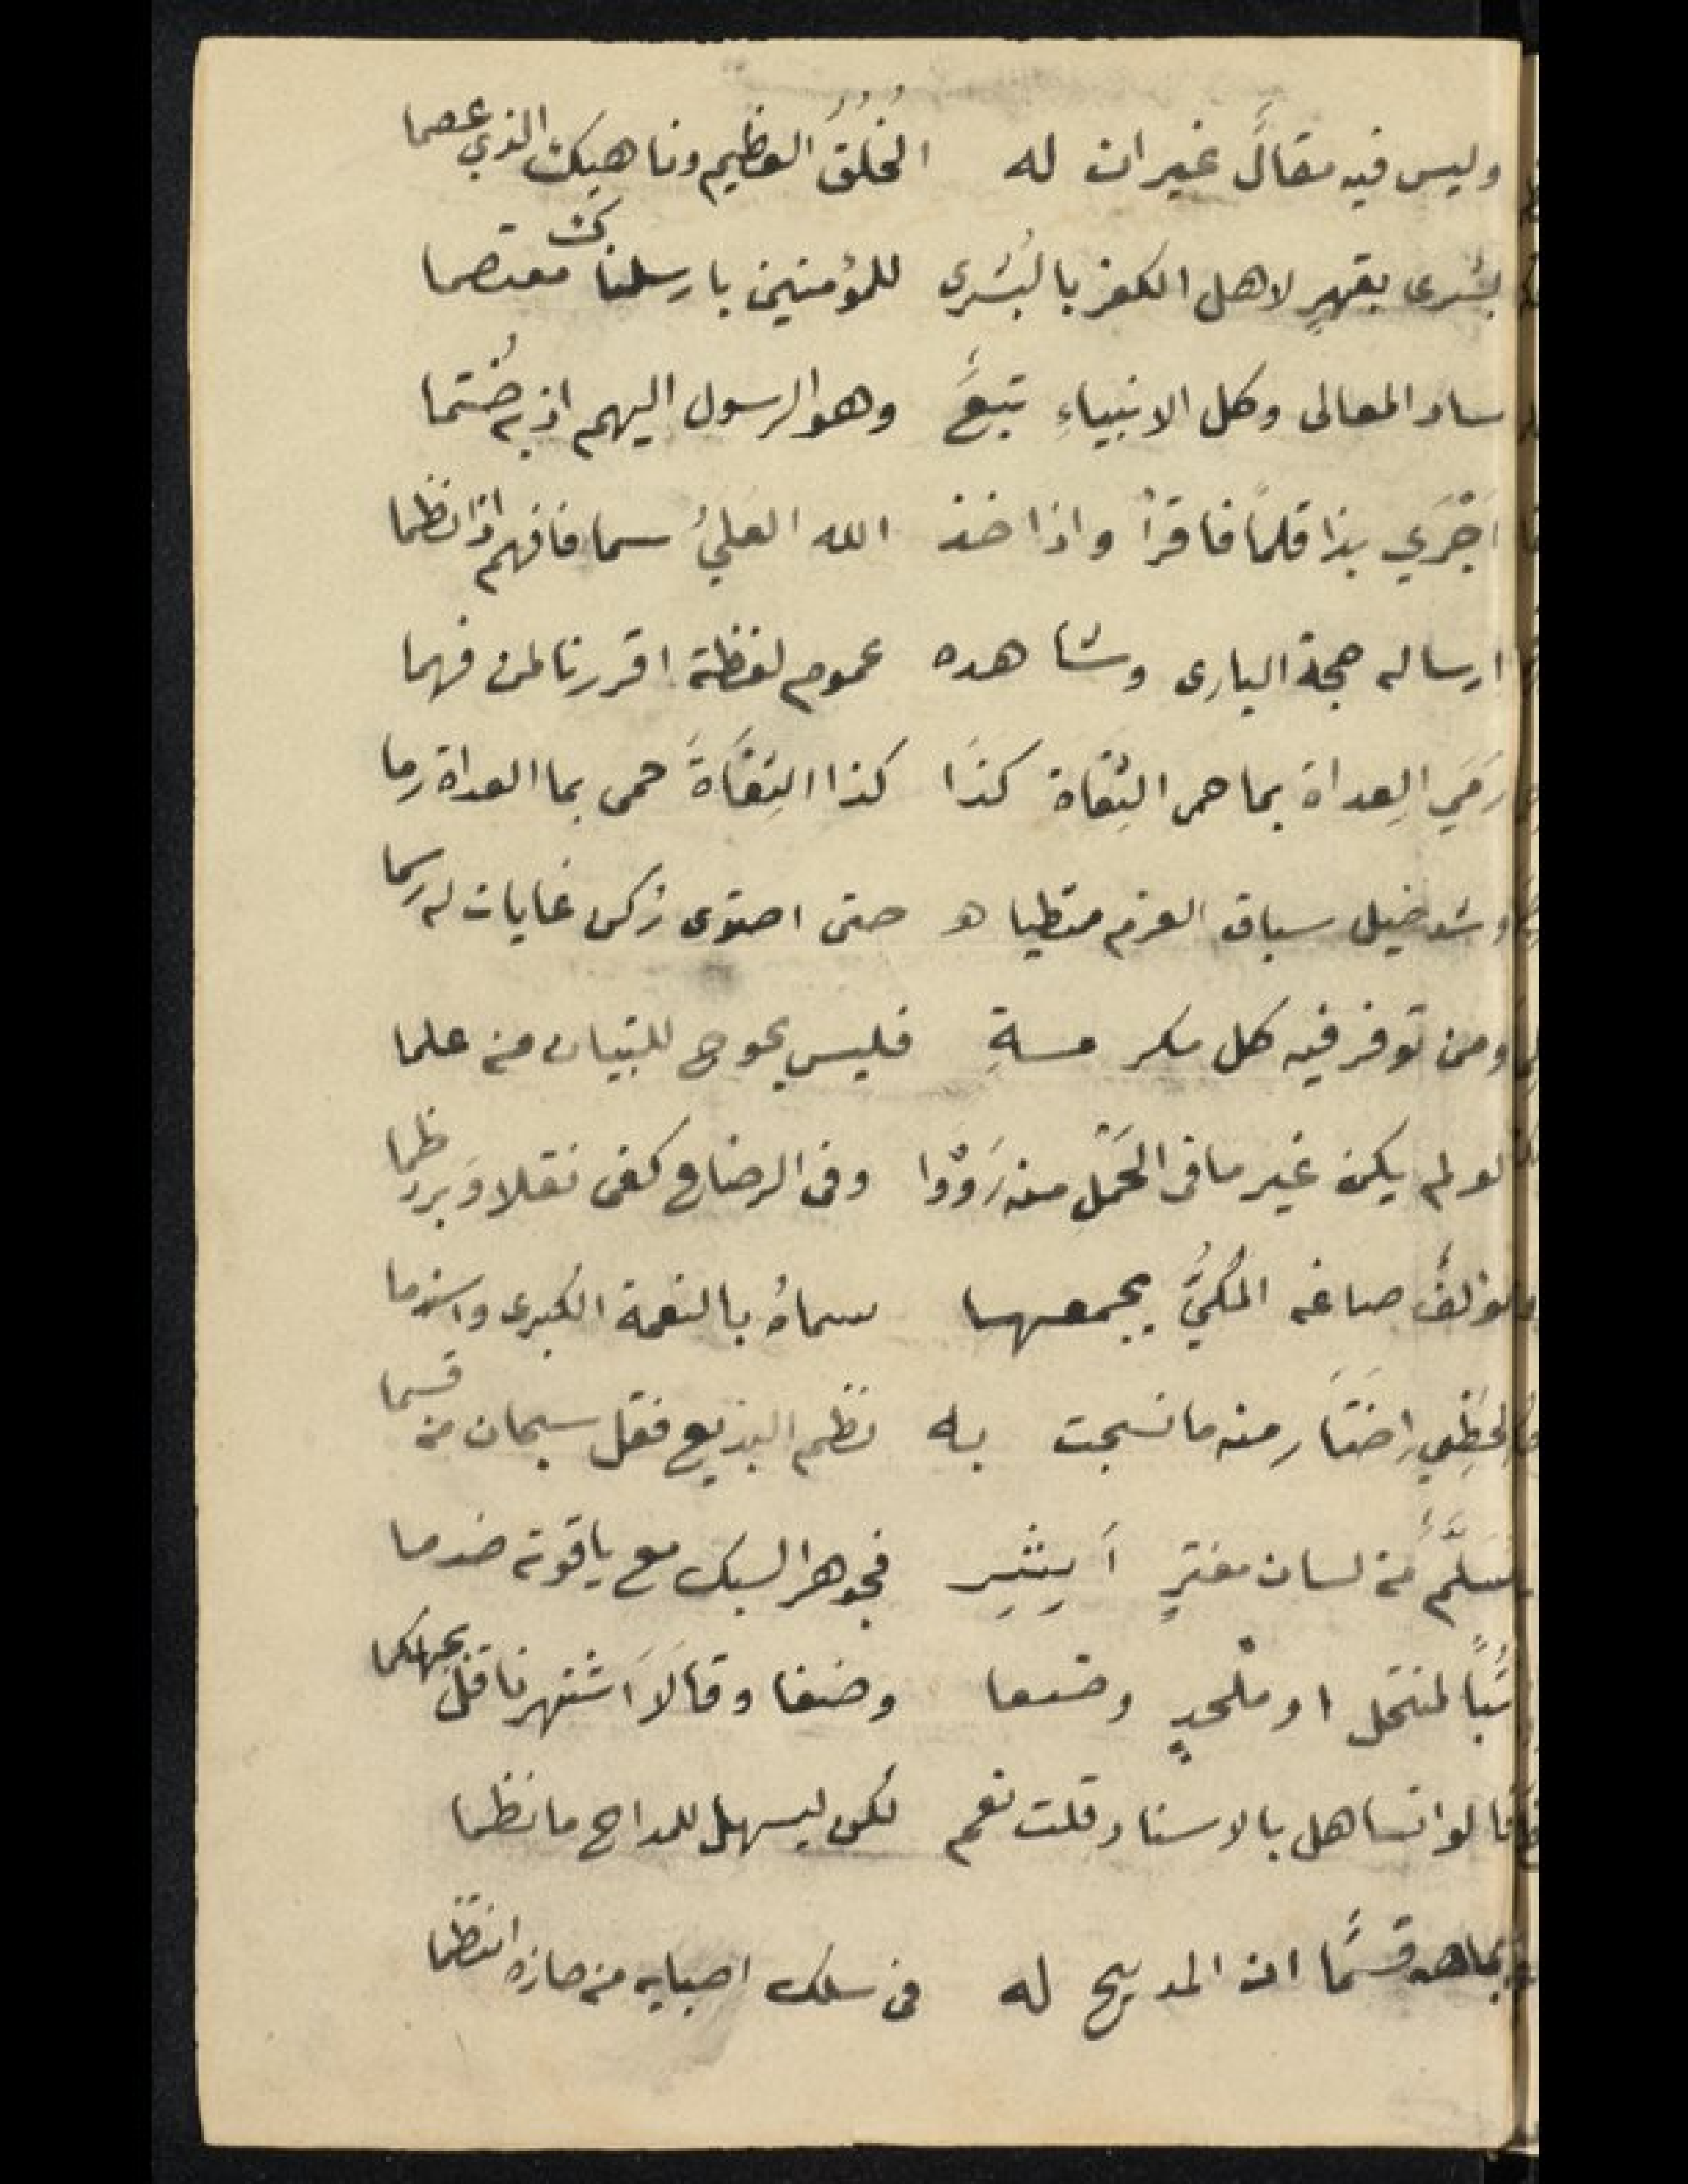 وليس فيه مقالٌ غير ان له الخُلُقُ العظيم وناهيك الذي عصما
بشرى بقهرٍ لاهل الكفر بالبُشرى للمؤمنين بارسلناك معتصما
ساد المعالى وكل الانبياءِ تبعٌ وهو الرسول اليهم اذ به خُتما
اَجْرَي بذا قلماً فاقرأ واذا خذ الله العليُ سما فافهم اذا نظما
ارساله حجة البارى وشاهده عموم لفظة اقررنا لمن فهما
رَمَي العِداة بما حمى الثِقاة كذَا كذا الثِقَاةَ حمى بما العداة رما
وشد خيل سباق العزم ممتطيا ه حتى احتوى زكى غايات له رسما
ومن توفر فيه كل مكرمةٍ فليس يحوج للتبيان من علما
لو لم يكن غير ما فى الحَمْلِ منه رَوَوْا وفى الرضاع كفى نقلا وَبرد ظما
مؤلفٌ صاغه المكيُّ يجمعها سماهُ بالنعمة الكبرى
اختَار منه ما نسجت به نظم البديع فقل سبحان من قسما
من لسان مفترٍ فجوهر السبك مع ياقوته خدما
تبًا لمنتحل او ملحدٍ وضعا وضعفا وقالاَ اشتهر ناقل
قالوا تساهل بالاسناد قلت نعم لكى ليسهل للمداح ما نظما
قسمًا ان المديح له فى سلك احبابه من حازه انتظما